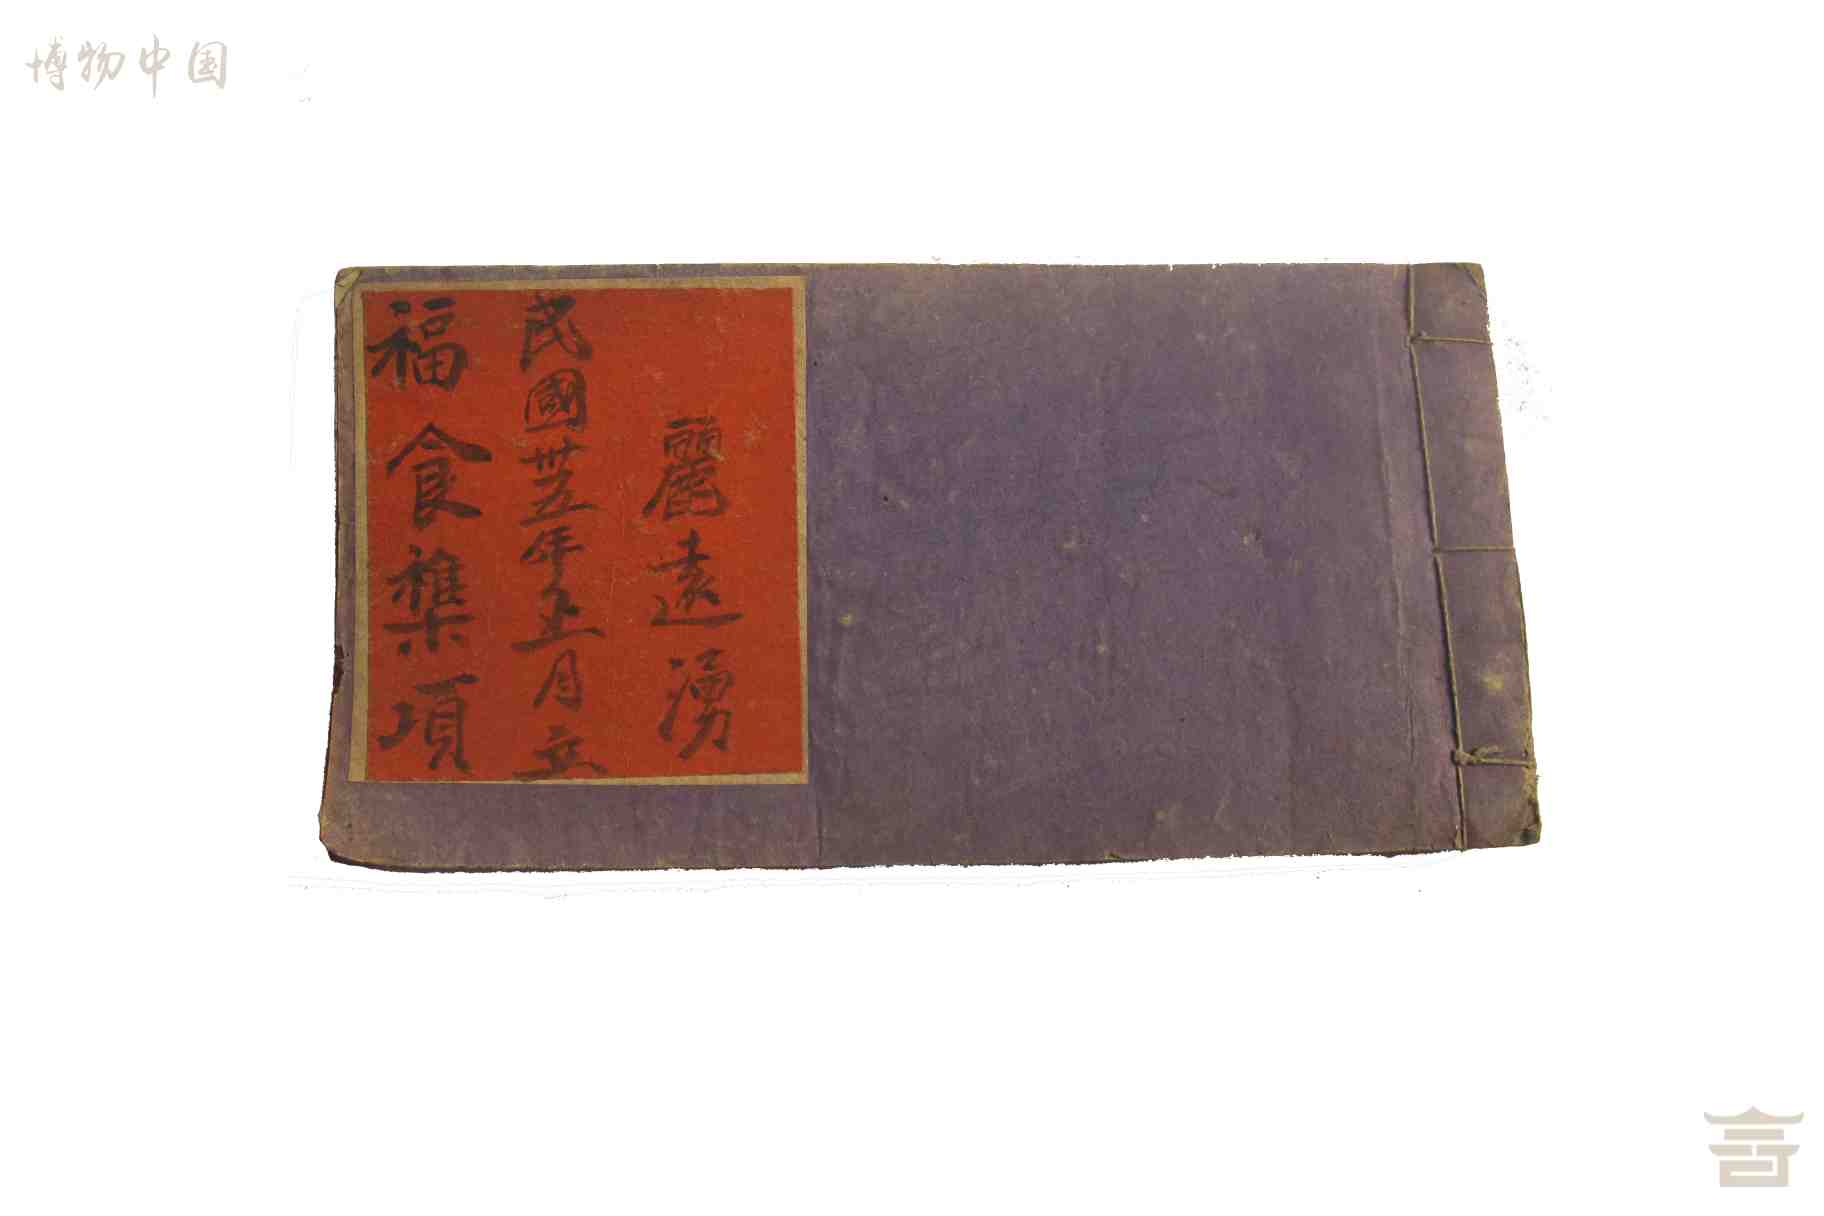 博物中国
麗遠湧
民國卅五年正月立
福食襍項